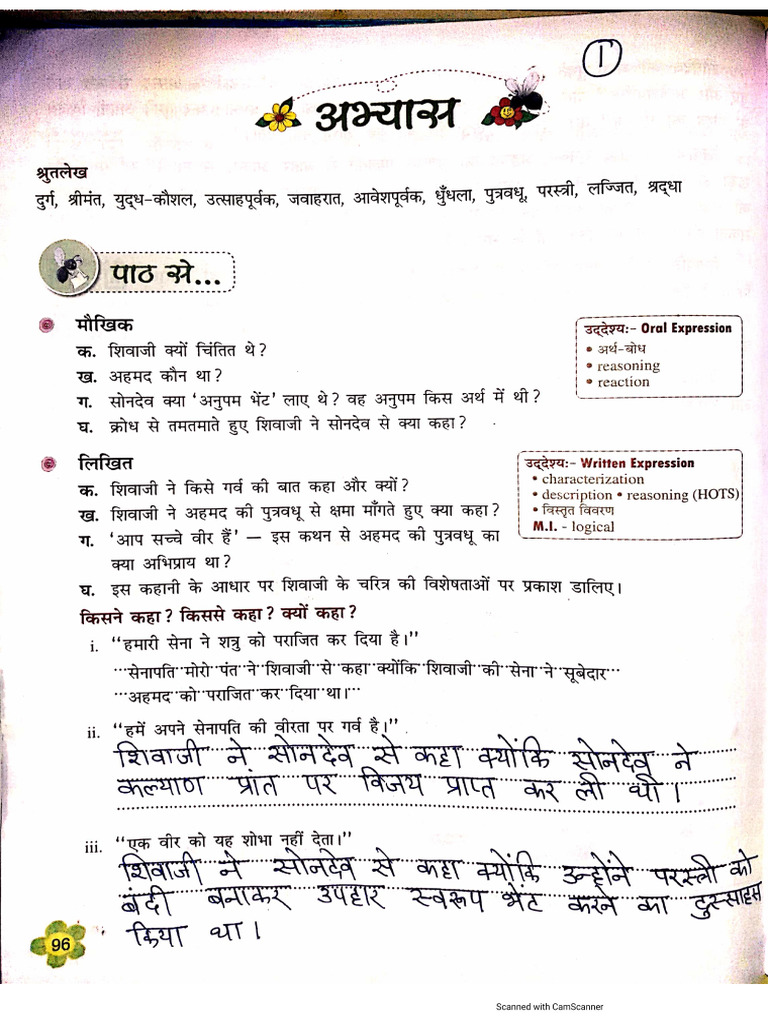 1
अभ्यास
श्रुतलेख
दुर्ग, श्रीमंत, युद्ध-कौशल, उत्साहपूर्वक, जवाहरात, आवेशपूर्वक, धुँधला, पुत्रवधू, परस्त्री, लज्जित, श्रद्धा
पाठ से...
मौखिक
क. शिवाजी क्यों चिंतित थे?
ख. अहमद कौन था?
ग. सोनदेव क्या 'अनुपम भेंट' लाए थे? वह अनुपम किस अर्थ में थी?
घ. क्रोध से तमतमाते हुए शिवाजी ने सोनदेव से क्या कहा?
उद्देश्यः- Oral Expression
• अर्थ-बोध
• reasoning
• reaction
लिखित
क. शिवाजी ने किसे गर्व की बात कहा और क्यों?
ख. शिवाजी ने अहमद की पुत्रवधू से क्षमा माँगते हुए क्या कहा?
ग. 'आप सच्चे वीर हैं' — इस कथन से अहमद की पुत्रवधू का
क्या अभिप्राय था?
घ. इस कहानी के आधार पर शिवाजी के चरित्र की विशेषताओं पर प्रकाश डालिए।
उद्देश्यः- Written Expression
• characterization
• description • reasoning (HOTS)
• विस्तृत विवरण
M.I. - logical
किसने कहा? किससे कहा? क्यों कहा?
i. "हमारी सेना ने शत्रु को पराजित कर दिया है।"
सेनापति मोरो पंत ने शिवाजी से कहा क्योंकि शिवाजी की सेना ने सूबेदार
अहमद को पराजित कर दिया था।
ii. "हमें अपने सेनापति की वीरता पर गर्व है।"
शिवाजी ने सोनदेव से कहा क्योंकि सोनदेव ने
कल्याण प्रांत पर विजय प्राप्त कर ली थी।
iii. "एक वीर को यह शोभा नहीं देता।"
शिवाजी ने सोनदेव से कहा क्योंकि उन्होंने परस्त्री को
बंदी बनाकर उपहार स्वरूप भेंट करने का दुस्साहस
किया था।
96
Scanned with CamScanner